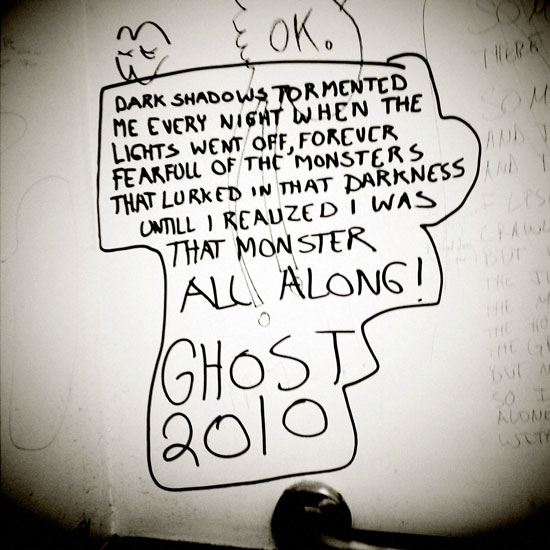 OK.
DARK SHADOWS TORMENTED
ME EVERY NIGHT WHEN THE
LIGHTS WENT OFF, FOREVER
FEARFULL OF THE MONSTERS
THAT LURKED IN THAT DARKNESS
UNTILL I REALIZED I WAS
THAT MONSTER
ALL ALONG!
GHOST
2010
SOM
THERE
SOM
AND I
AND Y
CRAWL
BUT
THE
THE M
THE HO
THE G
BUT
SO I
ALONE
WITH